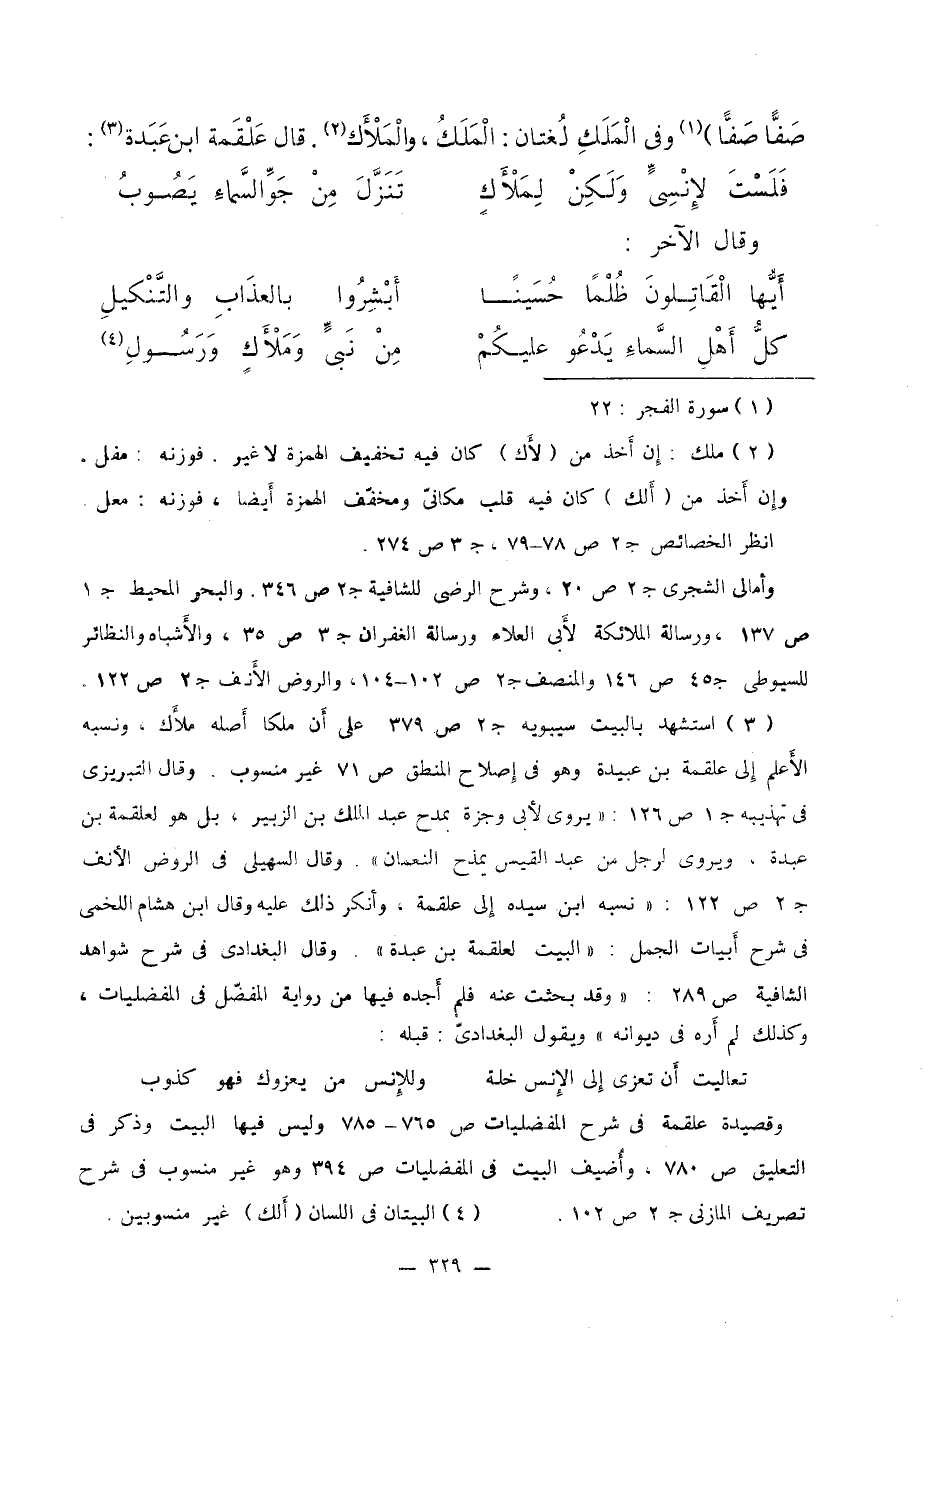 صَفًّا صَفًّا)(١) وفى الْمَلَكِ لُغتان : الْمَلَكُ ، والْمَلْأَك(٢) . قال عَلْقَمة ابن عَبَدة(٣) :
فَلَسْتَ لإِنْسِىٍّ وَلَكِنْ لِمَلْأَكٍ تَنَزَّلَ مِنْ جَوِّ السَّماءِ يَصُوبُ
وقال الآخر :
أَيُّها الْقَاتِلونَ ظُلْمًا حُسَينًا أَبْشِرُوا بالعذَابِ والتَّنْكيلِ
كلُّ أَهْلِ السَّماءِ يَدْعُو عليكُمْ مِنْ نَبىٍّ وَمَلْأَكٍ وَرَسُولِ(٤)
( ١ ) سورة الفجر : ٢٢
( ٢ ) ملك : إن أخذ من ( لأَك ) كان فيه تخفيف الهمزة لا غير . فوزنه : مفل .
وإن أَخذ من ( أَلك ) كان فيه قلب مكانىّ ومخفّف الهمزة أيضا ، فوزنه : معل .
انظر الخصائص جـ ٢ ص ٧٨–٧٩ ، جـ ٣ ص ٢٧٤ .
وأمالى الشجرى جـ ٢ ص ٢٠ ، وشرح الرضى للشافية جـ ٢ ص ٣٤٦ . والبحر المحيط جـ ١
ص ١٣٧ ، ورسالة الملائكة لأَبى العلاء ورسالة الغفران جـ ٣ ص ٣٥ ، والأَشباه والنظائر
للسيوطى جـ ٤ ص ١٤٦ والمنصف جـ ٢ ص ١٠٢–١٠٤ ، والروض الأَنف جـ ٢ ص ١٢٢ .
( ٣ ) استشهد بالبيت سيبويه جـ ٢ ص ٣٧٩ على أن ملكا أصله ملأَك ، ونسبه
الأَعلم إلى علقمة بن عبيدة وهو فى إصلاح المنطق ص ٧١ غير منسوب . وقال التبريزى
فى تهذيبه جـ ١ ص ١٢٦ : « يروى لأَبى وجزة يمدح عبد الملك بن الزبير ، بل هو لعلقمة بن
عبدة ، ويروى لرجل من عبد القيس يمدح النعمان » . وقال السهيلى فى الروض الأَنف
جـ ٢ ص ١٢٢ : « نسبه ابن سيده إلى علقمة ، وأنكر ذلك عليه وقال ابن هشام اللخمى
فى شرح أَبيات الجمل : « البيت لعلقمة بن عبدة » . وقال البغدادى فى شرح شواهد
الشافية ص ٢٨٩ : « وقد بحثت عنه فلم أَجده فيها من رواية المفضّل فى المفضليات ،
وكذلك لم أره فى ديوانه » ويقول البغدادىّ : قبله :
تعاليت أَن تعزى إلى الإِنس خلة وللإِنس من يعزوك فهو كذوب
وقصيدة علقمة فى شرح المفضليات ص ٧٦٥ – ٧٨٥ وليس فيها البيت وذكر فى
التعليق ص ٧٨٠ ، وأُضيف البيت فى المفضليات ص ٣٩٤ وهو غير منسوب فى شرح
تصريف المازنى جـ ٢ ص ١٠٢ . ( ٤ ) البيتان فى اللسان ( أَلك ) غير منسوبين .
— ٣٢٩ —